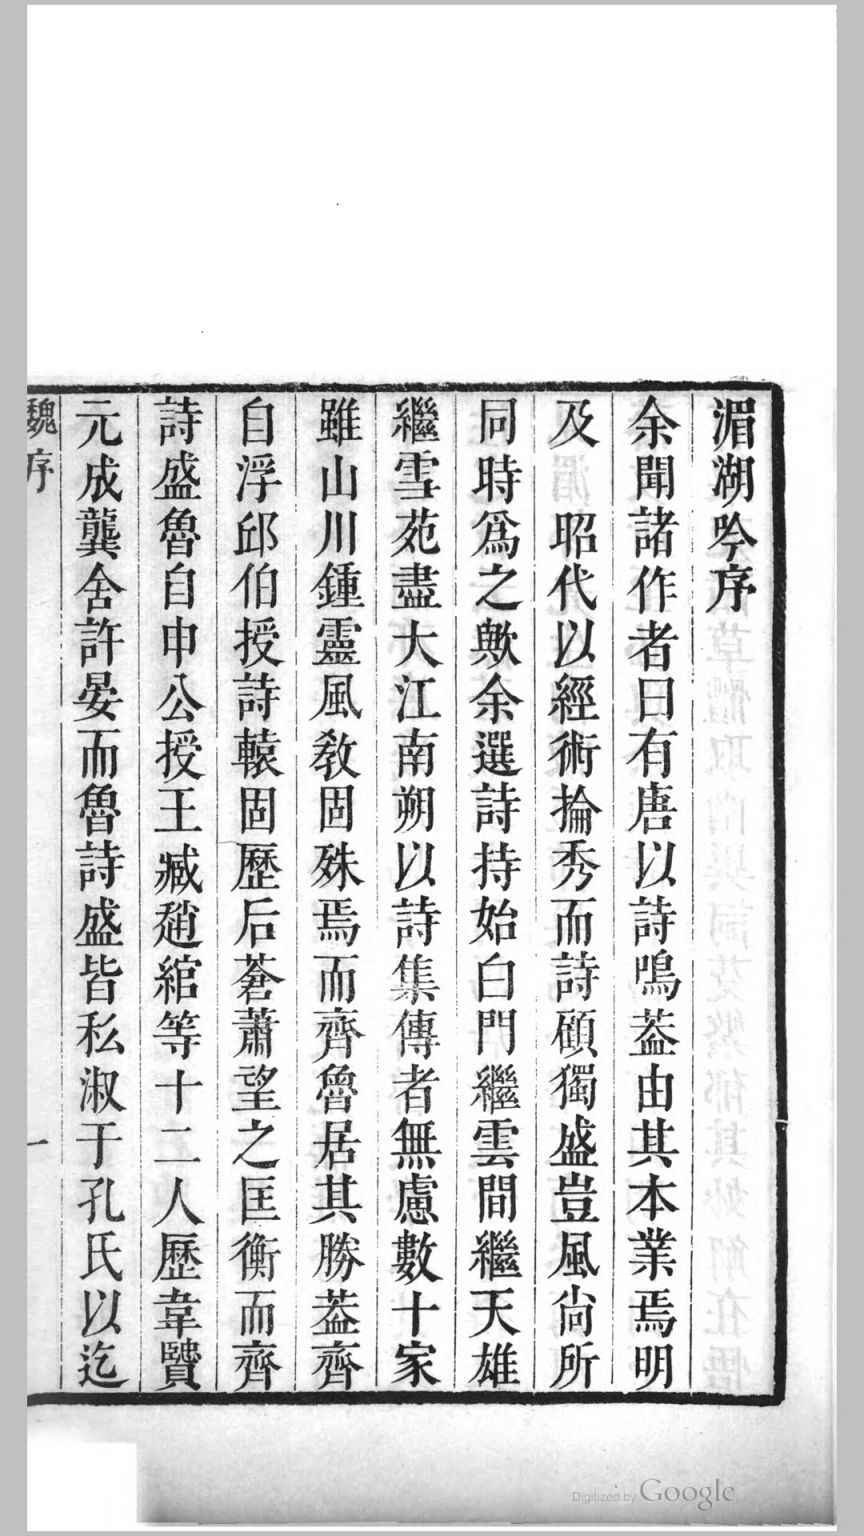 湄湖吟序
余聞諸作者曰有唐以詩鳴葢由其本業焉明
及　昭代以經術掄秀而詩顧獨盛豈風尙所
同時爲之歟余選詩持始白門繼雲間繼天雄
繼雪苑盡大江南朔以詩集傳者無慮數十家
雖山川鍾靈風敎固殊焉而齊魯居其勝葢齊
自浮邱伯授詩轅固歷后蒼蕭望之匡衡而齊
詩盛魯自申公授王臧趙綰等十二人歷韋賢
元成龔舍許晏而魯詩盛皆私淑于孔氏以迄
魏序
一
Digitized by Google